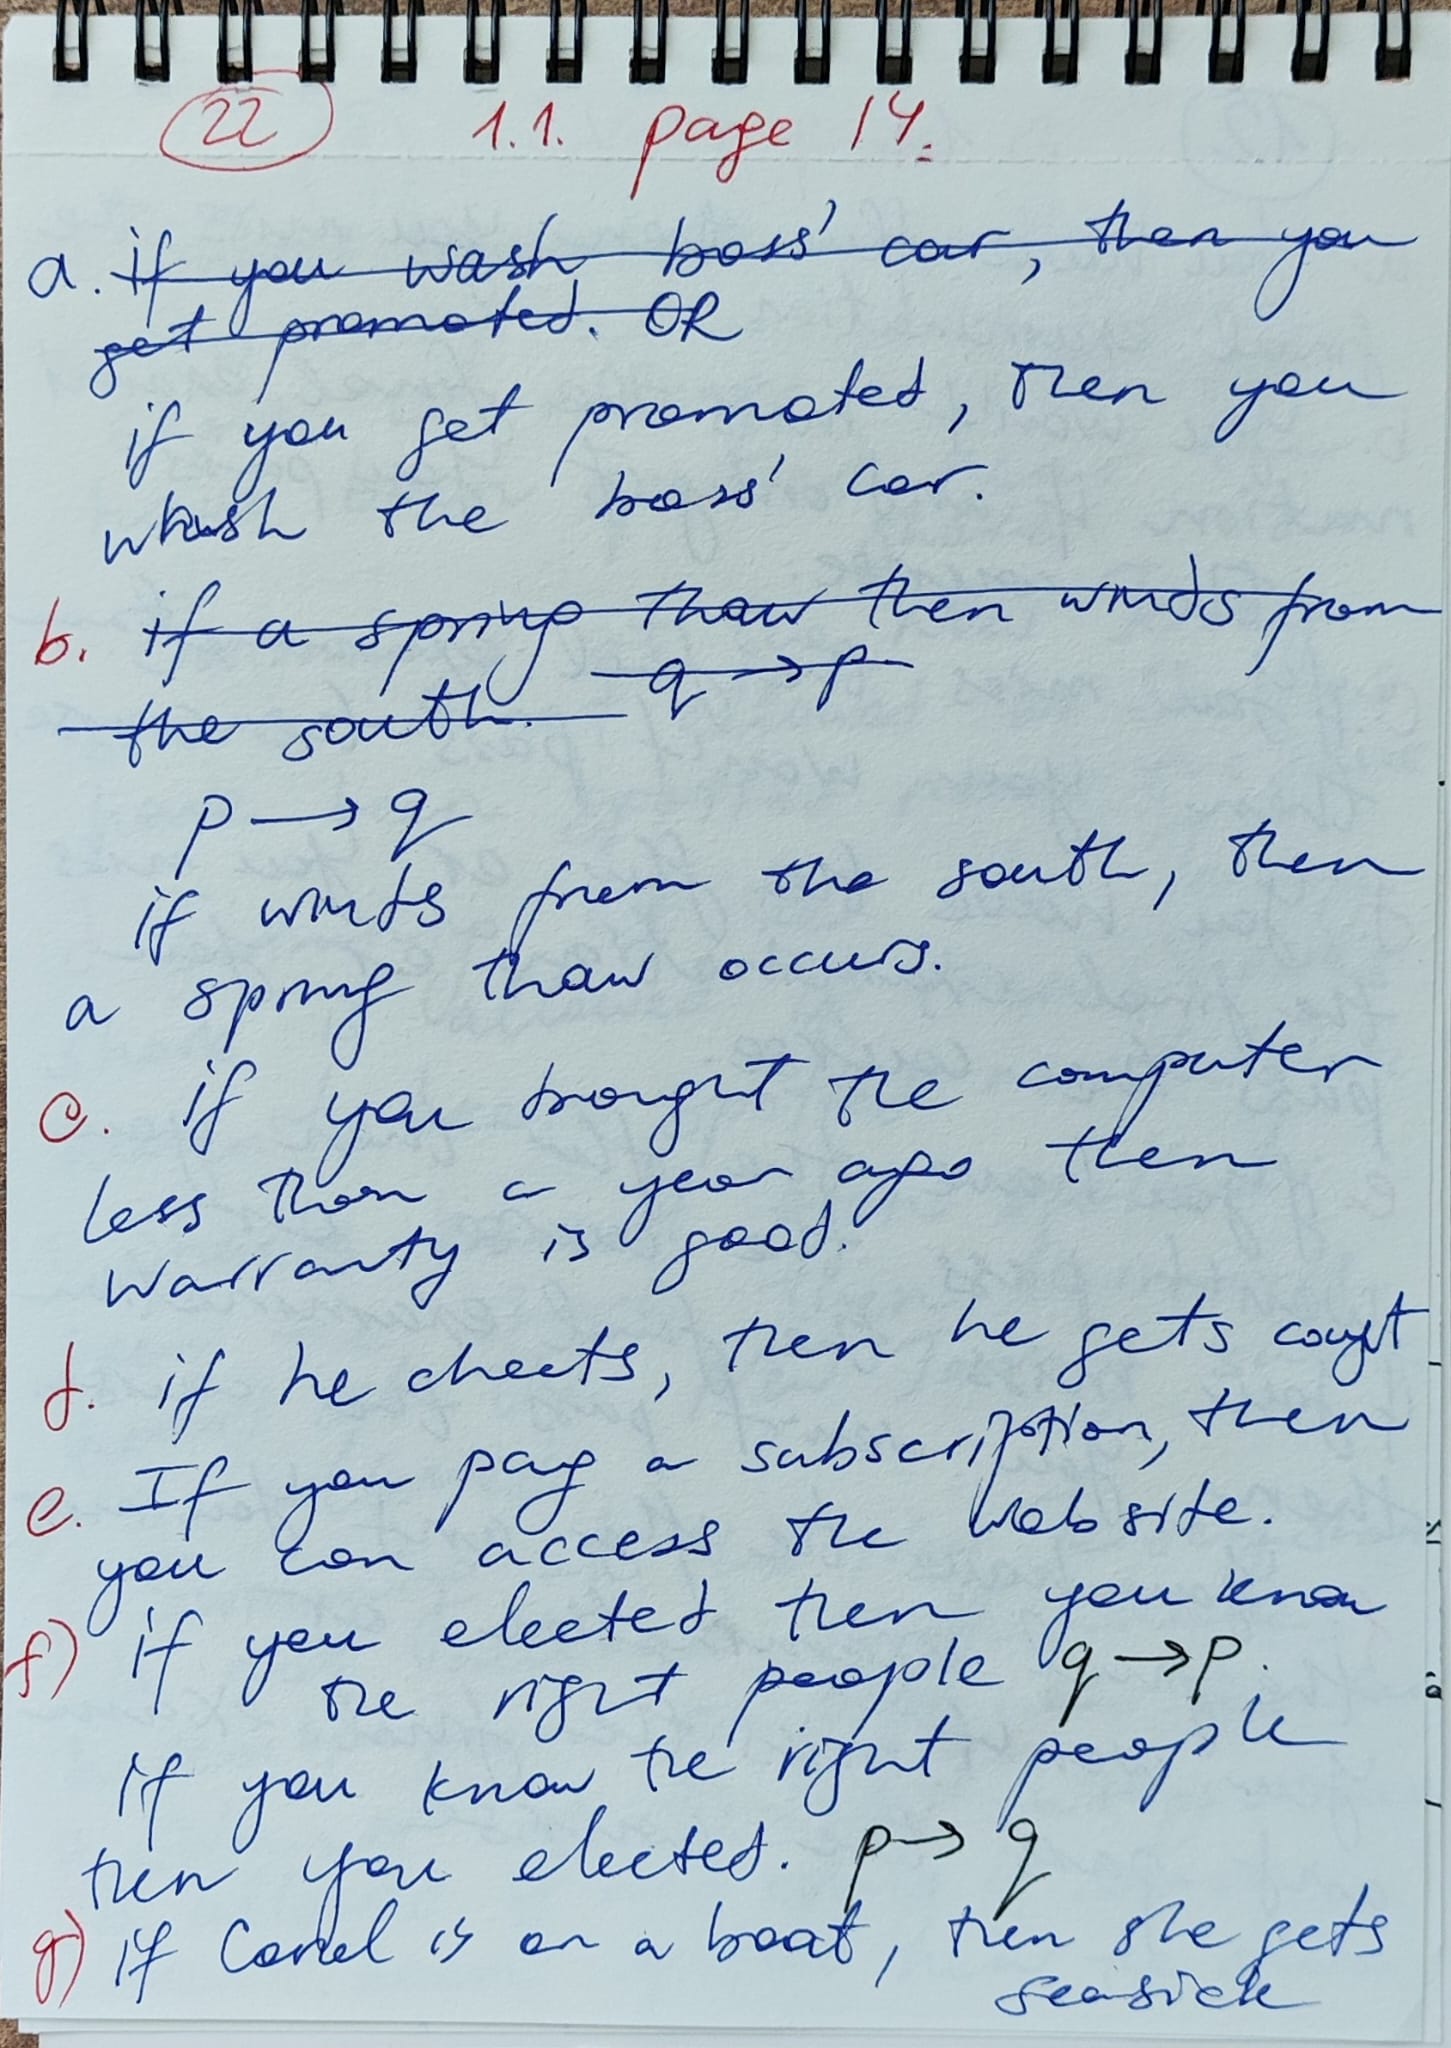 22 1.1. page 14.
a. if you wash boss' car, then you
get promoted. OR
if you get promoted, then you
wash the boss' car.
b. if a spring thaw then winds from
the south. q → p
p → q
if winds from the south, then
a spring thaw occurs.
c. if you bought the computer
less than a year ago then
warranty is good.
d. if he cheets, then he gets
e. If you pay a subscription, then
you can access the website.
f) if you elected then you know
the right people q → p.
if you know the right people
then you elected. p → q
g) if Carol is on a boat, then she gets
seasick